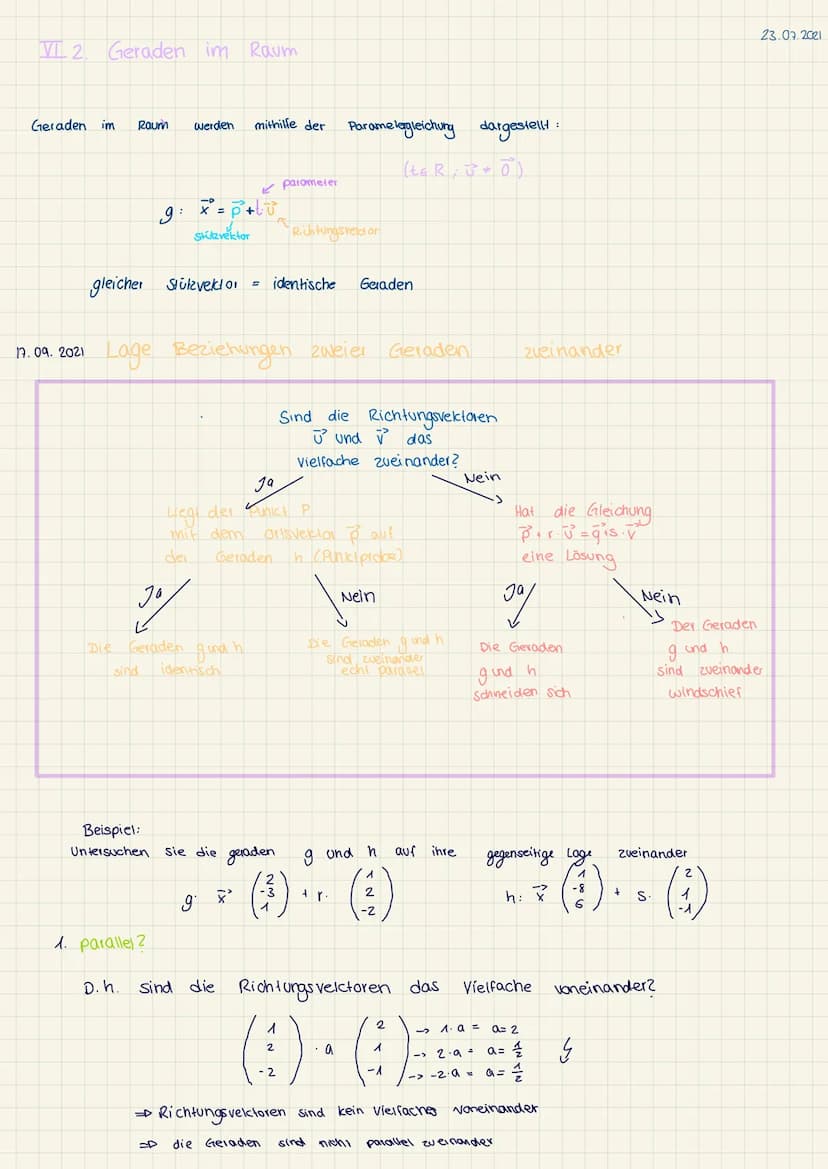 23.07.2021
VI.2. Geraden im Raum
Geraden im Raum werden mithilfe der Parametergleichung dargestellt:
(t∈R ; u⃗ ≠ 0⃗)
parameter
g: x⃗ = p⃗ + t u⃗
Stützvektor
Richtungsvektor
gleicher Stützvektor = identische Geraden
17.09.2021 Lage Beziehungen zweier Geraden zueinander
Sind die Richtungsvektoren
u⃗ und v⃗ das
Vielfache zueinander?
Ja
Nein
Liegt der Punkt P
mit dem Ortsvektor p⃗ auf
der Geraden h (Punktprobe)
Hat die Gleichung
p⃗ + r·u⃗ = q⃗ + s·v⃗
eine Lösung
Ja
Nein
Ja
Nein
Die Geraden g und h
sind identisch
Die Geraden g und h
sind zueinander
echt parallel
Die Geraden
g und h
schneiden sich
Der Geraden
g und h
sind zueinander
windschief
Beispiel:
Untersuchen Sie die geraden g und h auf ihre gegenseitige Lage zueinander
g: x⃗ (2 -3 1) + r. (1 2 -2) h: x⃗ (1 -8 6) + s. (2 1 -1)
1. parallel?
D.h. sind die Richtungsvektoren das Vielfache voneinander?
(1 2 -2) · a (2 1 -1)
→ 1·a = a=2
→ 2·a = a=1/2
→ -2·a = a=1/2
⇒ Richtungsvektoren sind kein Vielfaches voneinander
⇒ die Geraden sind nicht parallel zueinander